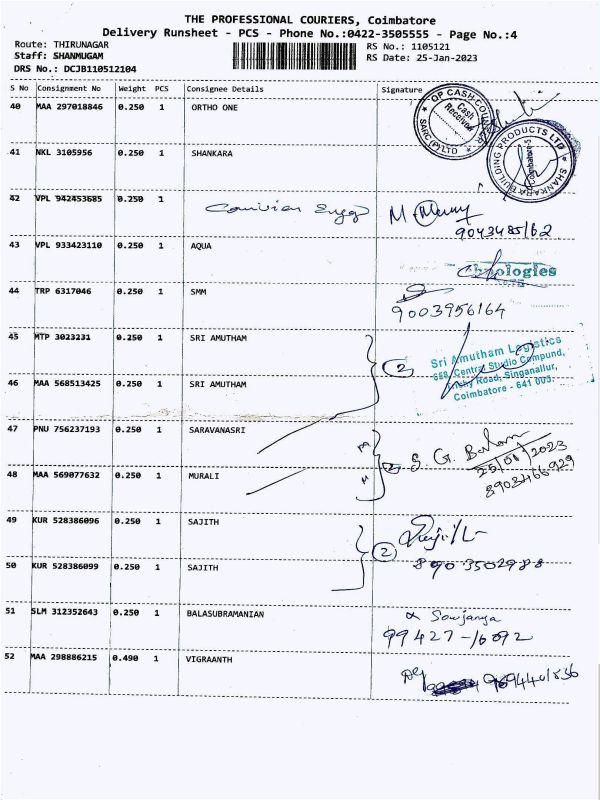 THE PROFESSIONAL COURIERS, Coimbatore
Delivery Runsheet - PCS - Phone No.:0422-3505555 - Page No.:4
Route: THIRUNAGAR
RS No.: 1105121
Staff: SHANMUGAM
RS Date: 25-Jan-2023
DRS No.: DCJB110512104
S No Consignment No Weight PCS Consignee Details Signature
40 MAA 297018846 0.250 1 ORTHO ONE
QP CASH COUN
Cash Received
SARC (P) LTD
41 NKL 3105956 0.250 1 SHANKARA
SHANKARA BUILDING PRODUCTS LTD
Coimbatore-5
42 VPL 942453685 0.250 1
9043485162
43 VPL 933423110 0.250 1 AQUA
hnologies
44 TRP 6317046 0.250 1 SMM
9003956164
45 MTP 3023231 0.250 1 SRI AMUTHAM
2
Sri Amutham Logistics
668, Central Studio Compund,
Trichy Road, Singanallur,
Coimbatore - 641 005.
46 MAA 568513425 0.250 1 SRI AMUTHAM
47 PNU 756237193 0.250 1 SARAVANASRI
2 S. G. Balan
25/01/2023
8903466929
48 MAA 569077632 0.250 1 MURALI
49 KUR 528386096 0.250 1 SAJITH
2
8903502988
50 KUR 528386099 0.250 1 SAJITH
51 SLM 312352643 0.250 1 BALASUBRAMANIAN
Sowjanya
99427-16092
52 MAA 298886215 0.490 1 VIGRAANTH